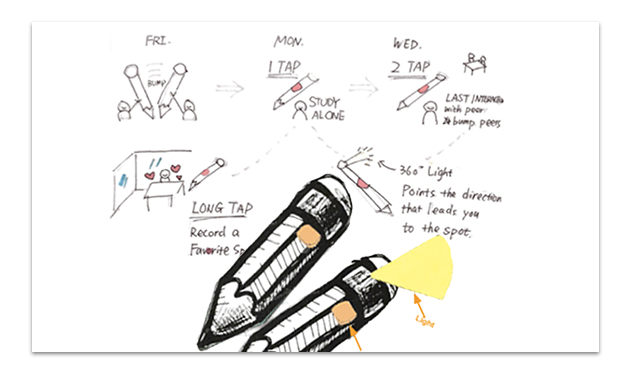 FRI.
MON.
WED.
BUMP
1 TAP
2 TAP
STUDY
ALONE
LAST INTERACTED
with peer
bump peers
LONG TAP
Record a
Favorite
360° Light
Points the direction
that leads you
to the spot.
Light